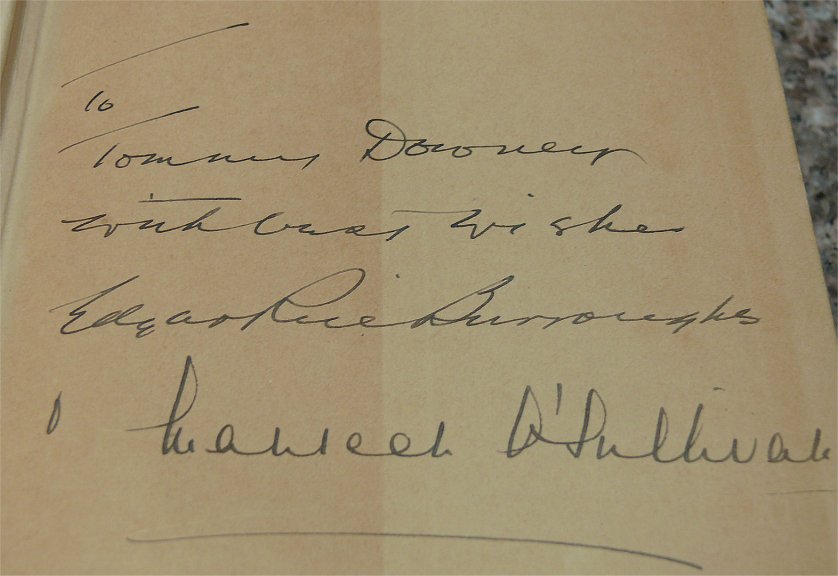 To
Tommy Downey
with best wishes
Edgar Rice Burroughs
Maureen O'Sullivan